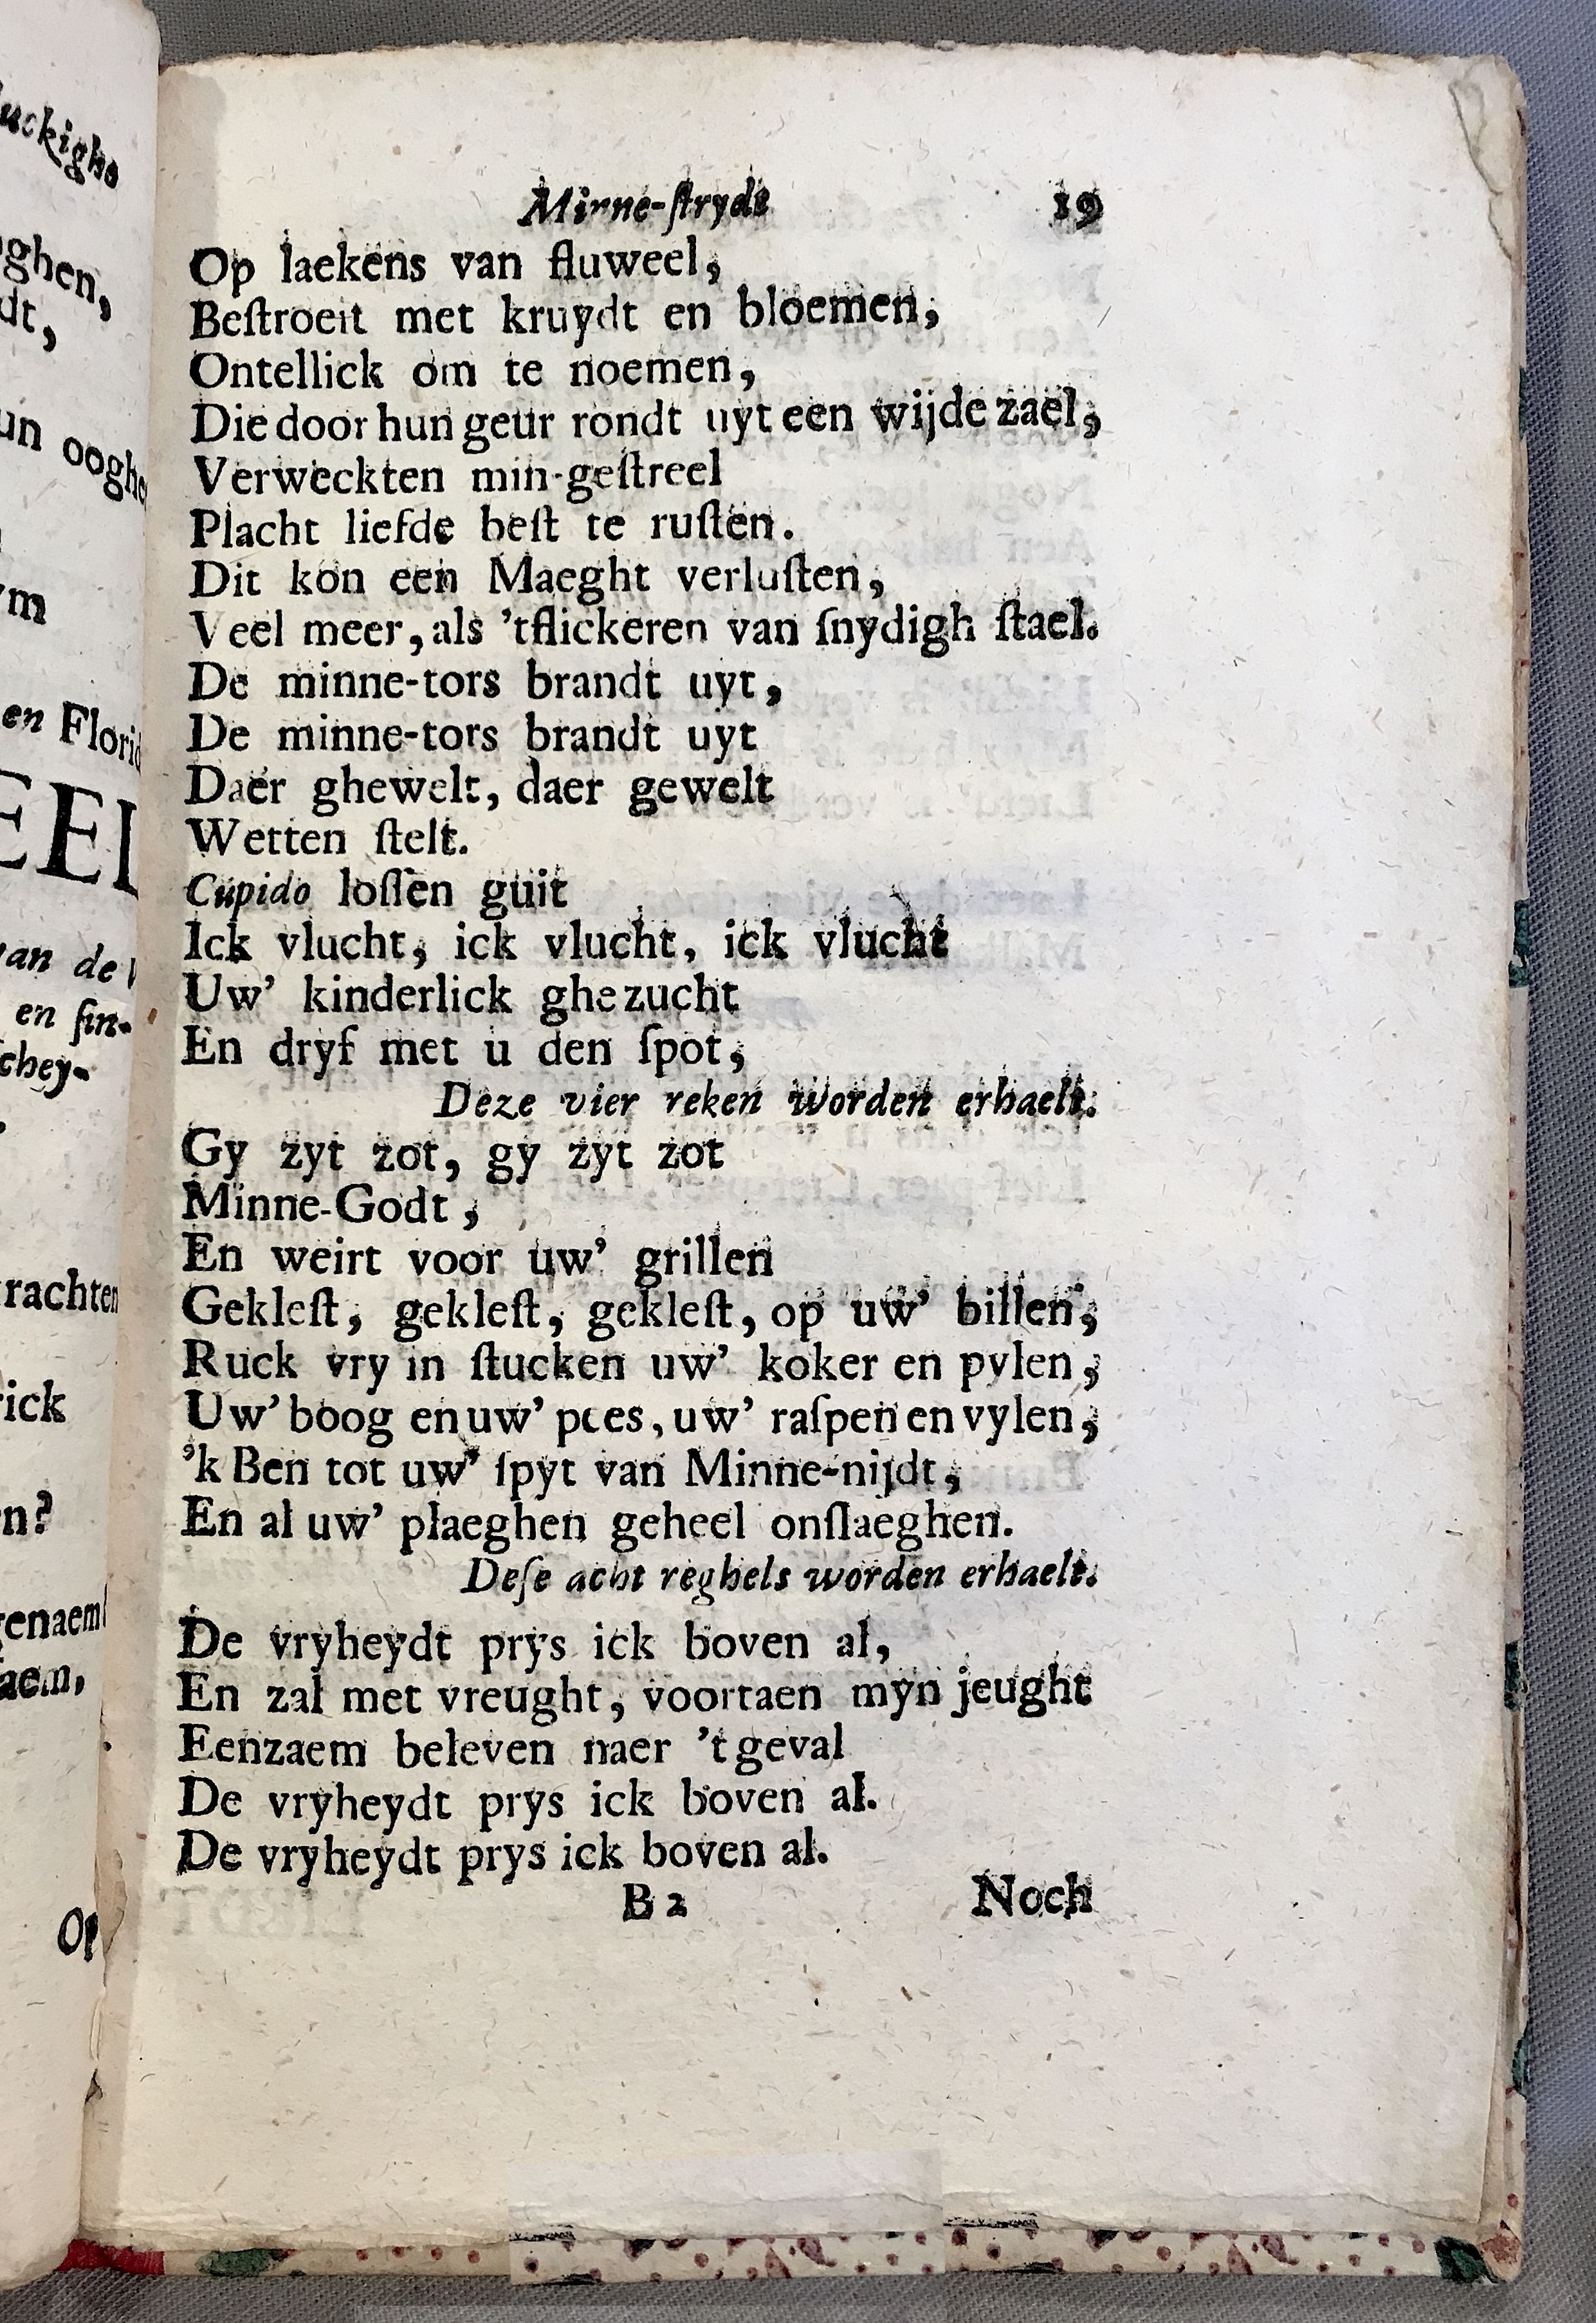 Minne-ſtrydt 19
Op laekens van fluweel,
Beſtroeit met kruydt en bloemen,
Ontellick om te noemen,
Die door hun geur rondt uyt een wijde zael,
Verweckten min-geſtreel
Placht liefde beſt te ruſten.
Dit kon een Maeght verluſten,
Veel meer, als 'tflickeren van ſnydigh ſtael.
De minne-tors brandt uyt,
De minne-tors brandt uyt
Daer ghewelt, daer gewelt
Wetten ſtelt.
Cupido loſſen guit
Ick vlucht, ick vlucht, ick vlucht
Uw' kinderlick ghezucht
En dryf met u den ſpot,
Deze vier reken worden erhaelt.
Gy zyt zot, gy zyt zot
Minne-Godt,
En weirt voor uw' grillen
Gekleſt, gekleſt, gekleſt, op uw' billen,
Ruck vry in ſtucken uw' koker en pylen,
Uw' boog en uw' pees, uw' raſpen en vylen,
'k Ben tot uw' ſpyt van Minne-nijdt,
En al uw' plaeghen geheel onſlaeghen.
Deſe acht reghels worden erhaelt.
De vryheydt prys ick boven al,
En zal met vreught, voortaen myn jeught
Eenzaem beleven naer 't geval
De vryheydt prys ick boven al.
De vryheydt prys ick boven al.
B 2 Noch